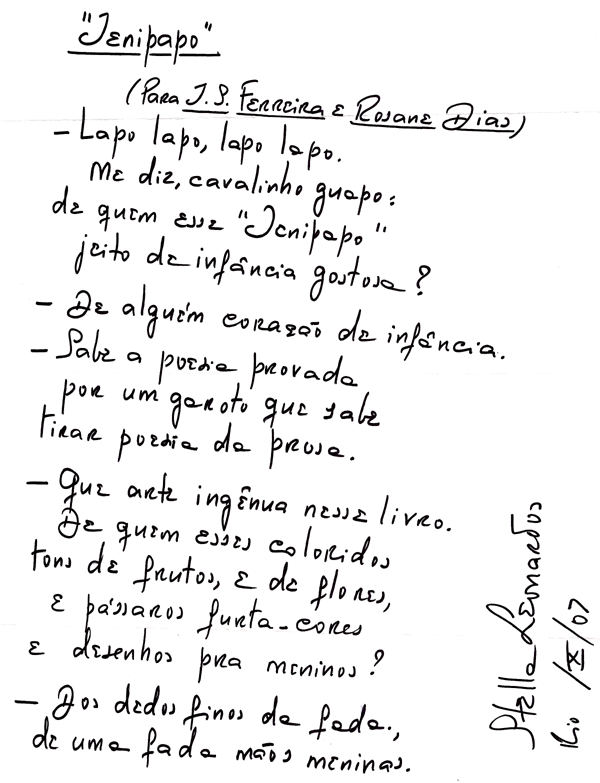 "Jenipapo"
(Para J. S. Ferreira e Rosane Dias)
- Lapo lapo, lapo lapo.
Me diz, cavalinho guapo:
de quem esse "Jenipapo"
jeito de infância gostosa?
- De alguém coração de infância.
- Sabe a poesia provada
por um garoto que sabe
tirar poesia da prosa.
- Que arte ingênua nesse livro.
De quem esses coloridos
tons de frutos, e de flores,
e pássaros furta-cores
e desenhos pra meninos?
- Dos dedos finos da fada.,
de uma fada mãos meninas.
Stella Leonardos
Rio /X/07